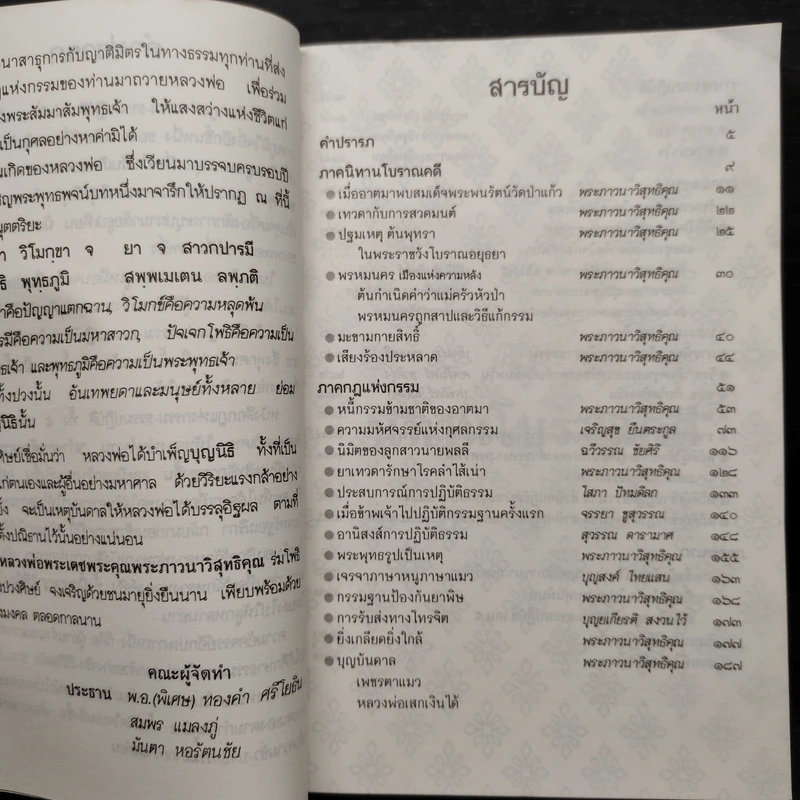 นาสาธุการกับญาติมิตรในทางธรรมทุกท่านที่ส่ง
แห่งกรรมของท่านมาถวายหลวงพ่อ เพื่อร่วม
งพระสัมมาสัมพุทธเจ้า ให้แสงสว่างแห่งชีวิตแก่
เป็นกุศลอย่างหาค่ามิได้
นเกิดของหลวงพ่อ ซึ่งเวียนมาบรรจบครบรอบปี
ชิญพระพุทธพจน์บทหนึ่งมาจารึกให้ปรากฏ ณ ที่นี้
นุตตริยะ
า วิโมกฺขา จ ยา จ สาวกปารมี
ธิ พุทฺธภูมิ สพฺพเมเตน ลพฺภติ
าคือปัญญาแตกฉาน, วิโมกข์คือความหลุดพ้น
รมีคือความเป็นมหาสาวก, ปัจเจกโพธิคือความเป็น
ธเจ้า และพุทธภูมิคือความเป็นพระพุทธเจ้า
ทั้งปวงนั้น อันเทพยดาและมนุษย์ทั้งหลาย ย่อม
ญนิธินั้น
ศิษย์เชื่อมั่นว่า หลวงพ่อได้บำเพ็ญบุญนิธิ ทั้งที่เป็น
แก่ตนเองและผู้อื่นอย่างมหาศาล ด้วยวิริยะแรงกล้าอย่าง
ยิ่ง จะเป็นเหตุบันดาลให้หลวงพ่อได้บรรลุอิฐผล ตามที่
ตั้งปณิธานไว้นั้นอย่างแน่นอน
หลวงพ่อพระเดชพระคุณพระภาวนาวิสุทธิคุณ ร่มโพธิ์
งปวงศิษย์ จงเจริญด้วยชนมายุยิ่งยืนนาน เพียบพร้อมด้วย
มงคล ตลอดกาลนาน
คณะผู้จัดทำ
ประธาน พ.อ.(พิเศษ) ทองคำ ศรีโยธิน
สมพร แมลงภู่
มันตา หอรัตนชัย
สารบัญ
หน้า
คำปรารภ ๕
ภาคนิทานโบราณคดี ๙
เมื่ออาตมาพบสมเด็จพระพนรัตน์วัดป่าแก้ว พระภาวนาวิสุทธิคุณ ๑๑
เทวดากับการสวดมนต์ พระภาวนาวิสุทธิคุณ ๒๒
ปฐมเหตุ ต้นพุทรา พระภาวนาวิสุทธิคุณ ๒๕
ในพระราชวังโบราณอยุธยา
พรหมนคร เมืองแห่งความหลัง พระภาวนาวิสุทธิคุณ ๓๐
ต้นกำเนิดคำว่าแม่ครัวหัวป่า
พรหมนครถูกสาปและวิธีแก้กรรม
มะขามกายสิทธิ์ พระภาวนาวิสุทธิคุณ ๔๐
เสียงร้องประหลาด พระภาวนาวิสุทธิคุณ ๔๔
ภาคกฎแห่งกรรม ๕๑
หนี้กรรมข้ามชาติของอาตมา พระภาวนาวิสุทธิคุณ ๕๓
ความมหัศจรรย์แห่งกุศลกรรม เจริญสุข ยืนตระกูล ๗๓
นิมิตของลูกสาวนายพลลี ฉวีวรรณ ชัยศิริ ๑๑๖
ยาเทวดารักษาโรคลำไส้เน่า พระภาวนาวิสุทธิคุณ ๑๒๘
ประสบการณ์การปฏิบัติธรรม โสภา ปัทมดิลก ๑๓๓
เมื่อข้าพเจ้าไปปฏิบัติกรรมฐานครั้งแรก จรรยา ชูสุวรรณ ๑๔๐
อานิสงส์การปฏิบัติธรรม สุวรรณ ดารามาศ ๑๔๘
พระพุทธรูปเป็นเหตุ พระภาวนาวิสุทธิคุณ ๑๕๕
เจรจาภาษาหนูภาษาแมว บุญสงค์ ไทยแสน ๑๖๓
กรรมฐานป้องกันยาพิษ พระภาวนาวิสุทธิคุณ ๑๖๘
การรับส่งทางโทรจิต บุญยเกียรติ สงวนไว้ ๑๗๓
ยิ่งเกลียดยิ่งใกล้ พระภาวนาวิสุทธิคุณ ๑๗๗
บุญบันดาล พระภาวนาวิสุทธิคุณ ๑๘๗
เพชรตาแมว
หลวงพ่อเสกเงินได้